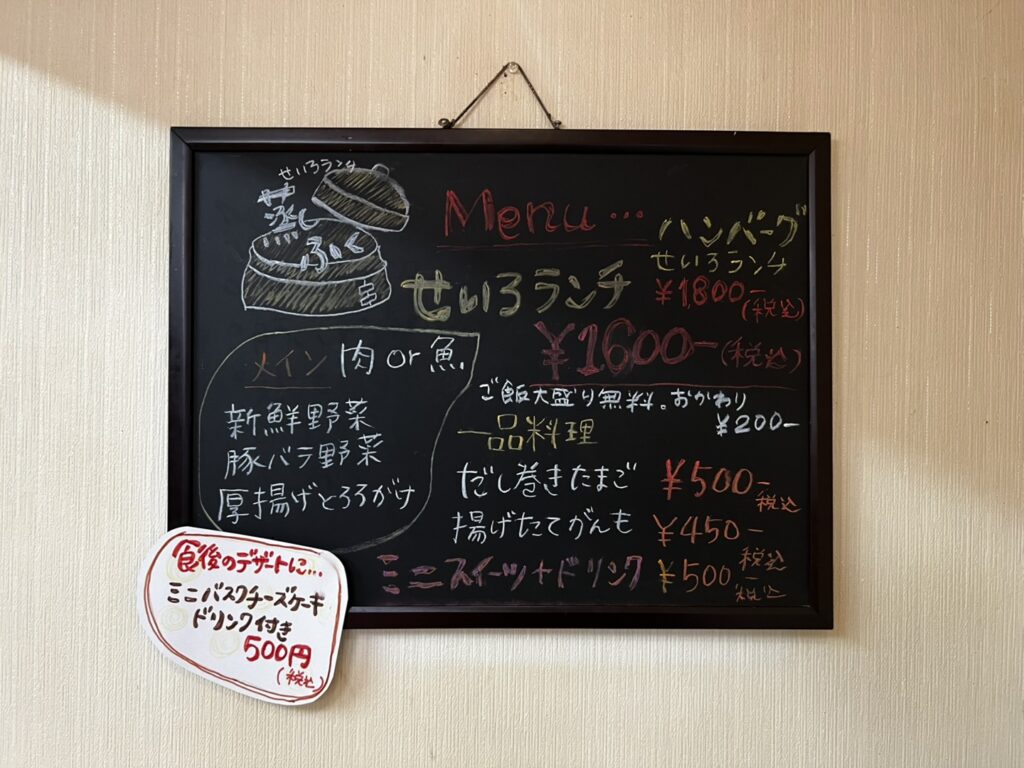 せいろランチ
蒸し
ふく
Menu...
ハンバーグ
せいろランチ
¥1800-
(税込)
せいろランチ
¥1600-(税込)
メイン 肉 or 魚
新鮮野菜
豚バラ野菜
厚揚げとろろがけ
ご飯大盛り無料。おかわり
¥200-
一品料理
だし巻きたまご ¥500-
税込
揚げたてがんも ¥450-
税込
ミニスイーツ+ドリンク ¥500-
税込
食後のデザートに...
ミニバスクチーズケーキ
ドリンク付き
500円
(税込)